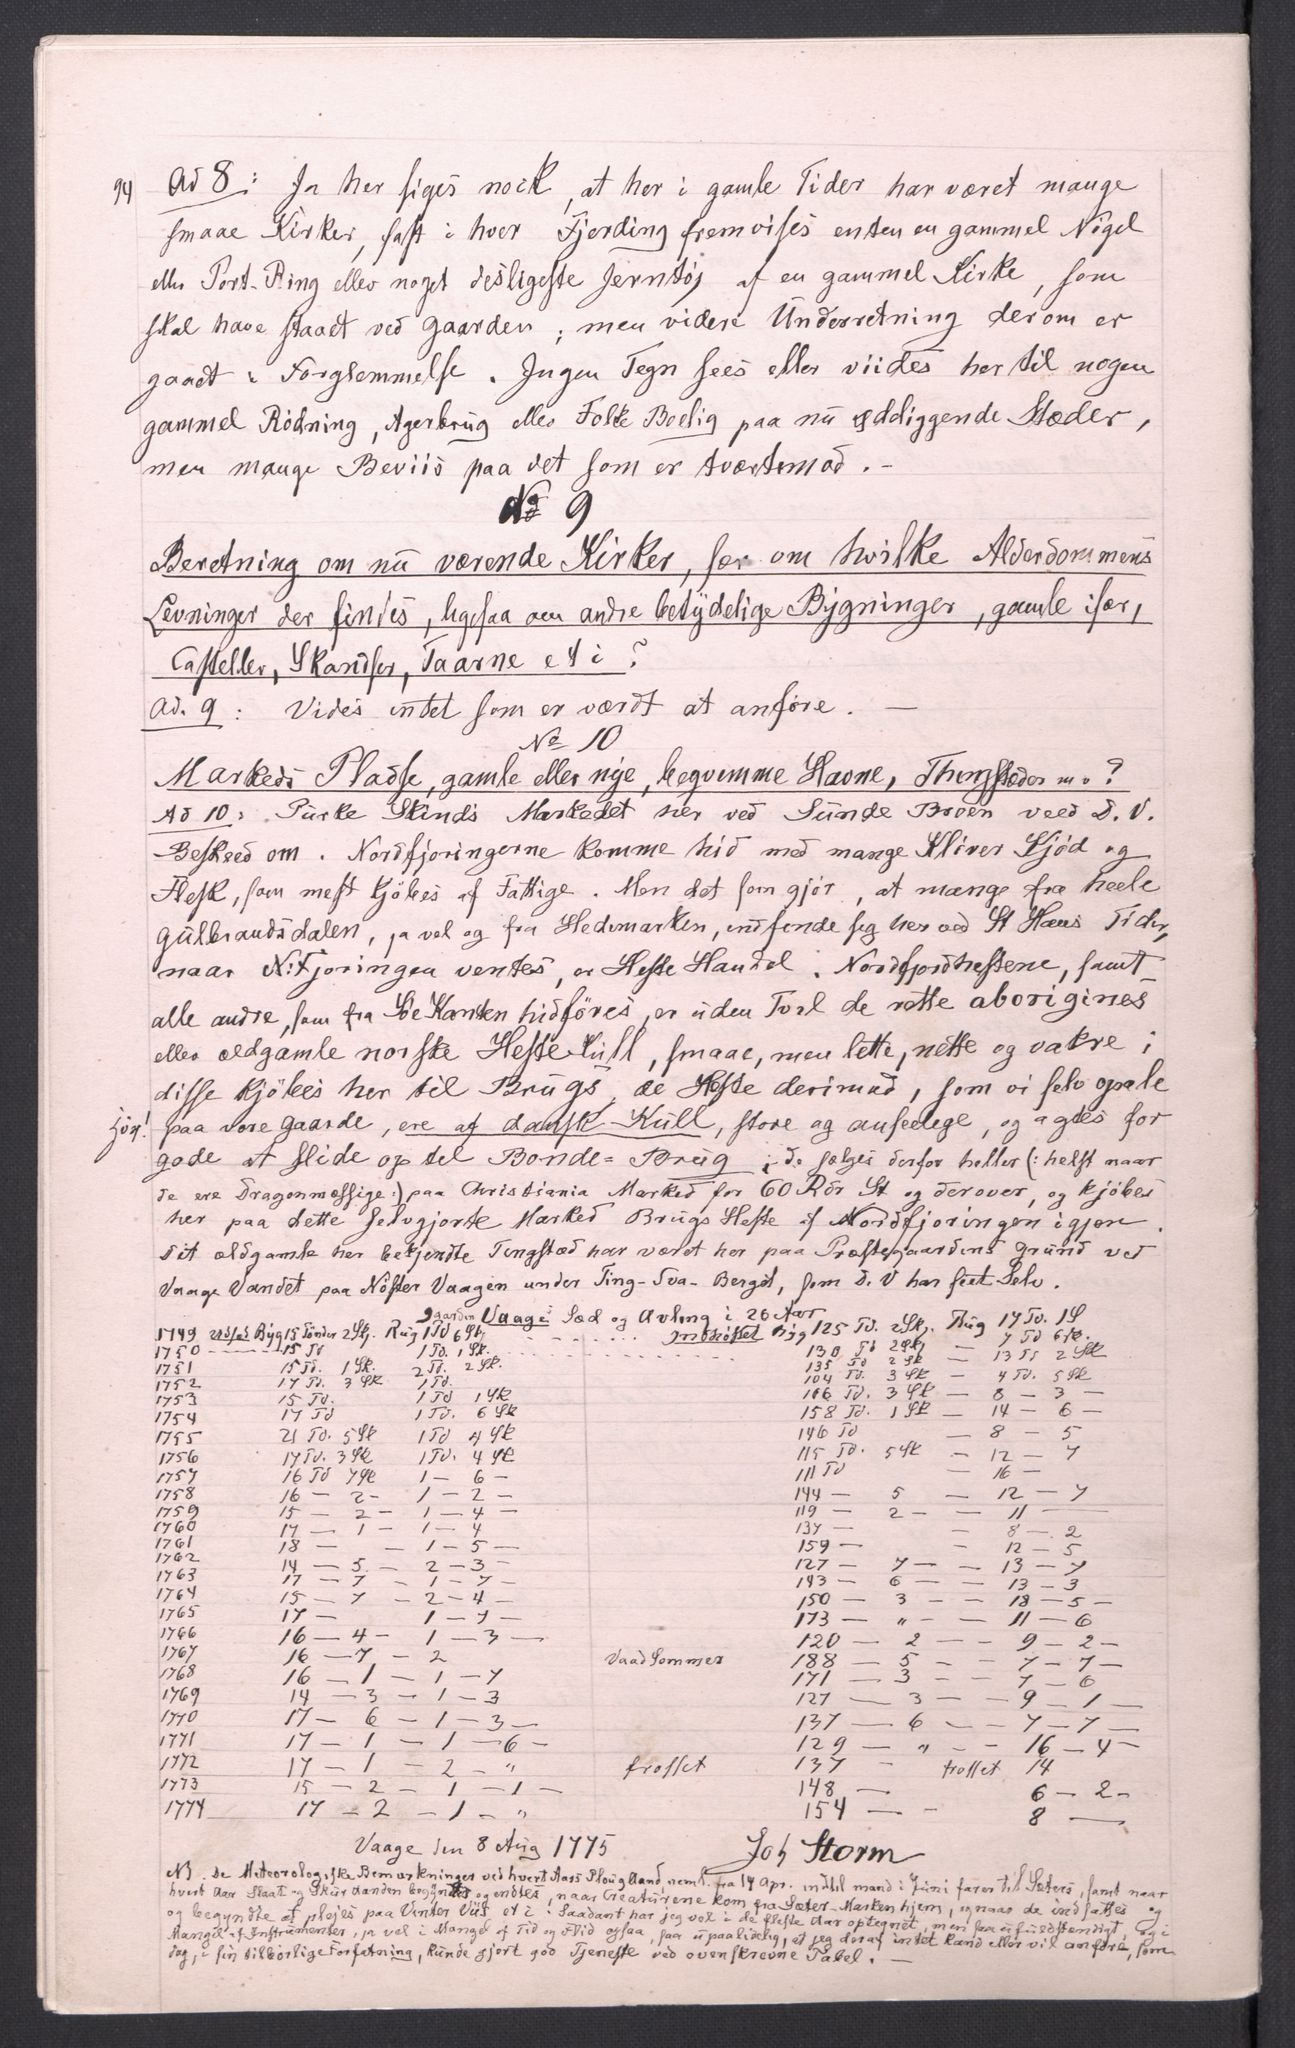 94 Ad 8: Ja her siges nock, at her i gamle Tider har været mange
smaae Kirker, fast i hver Fjerding fremvises enten en gammel Nøgel
eller Port-Ring eller noget desligeste Jerntøj af en gammel Kirke, som
skal have staaet ved Gaarden; men videre Underretning derom er
gaaet i Forglemmelse. Ingen Tegn sees eller viides her til nogen
gammel Rödning, Agerbrug eller Folke Boelig paa nu ødeliggende Stæder,
men mange Beviis paa det som er tvertimod. -
No 9
Beretning om nu værende Kirker, sær om hvilke Alderdommens
Levninger der findes, ligesaa om andre betydelige Bygninger, gamle især,
Casteller, Skandser, Taarne etc?
Ad. 9: Vides intet som er værdt at anføre. —
No 10
Markeds Pladse, gamle eller nye, beqvemme Havne, Thingstæder m.v?
Ad 10: Purke Skinds Markedet her ved Sunde Broen veed D. V.
Beskeed om. Nordfjoringerne komme hid med mange Kliver Kjöd og
Flesk, som mest kjöbes af Fattige. Men det som gjör, at mange fra heele
Gulbrandsdalen, ja vel og fra Hedemarken, indfinde sig her ved St Hans Tider,
naar N:Fjoringen ventes, er Heste Handel. Nordfjordhestene, samt
alle andre, som fra Söe Kanten hidföres, er uden Tvil de rette aborigines
eller ældgamle norske Heste Kull, smaae, men lette, nette og vakre;
disse kjöbes her til Brugs, de Heste derimod, som vi selv opale
jöx! paa vore gaarde, ere af dansk Kull, store og anseelege, og agtes for
gode at slide op til Bonde= Brug; de sælges derfor heller (: helst naar
de ere Dragonmessige:) paa Christiania Marked for 60 Rdr St og derover, og kjöbes
her paa dette selvgjorte Marked Brugs Heste af Nordfjoringen igjen.
Dit ældgamle her bekjendte Tingstæd har været her paa Præstegaardens Grund ved
Vaage Vandet paa Nöster Vaagen under Ting-Sva-Berget, som D. V har seet Selv.
Gaarden Vaages Sæd og Avling i 26 Aar
1749 Udsæd Byg 15 Tönder 2 Sk. Rug 1 Td 6 Sk. Indhöstet Byg 125 Td. 2 Sk. Rug 17 Td. 1 S
1750 — 15 Td 1 Td. 1 Sk. 130 Td 2 Sk — 7 Td 6 Sk.
1751 15 Td. 1 Sk. 2 Td. 2 Sk. 135 Td 2 Sk — 13 Td 2 Sk
1752 17 Td. 3 Sk 1 Td. 104 Td. 3 Sk — 4 Td. 5 Sk
1753 15 Td. 1 Td 1 Sk 106 Td. 3 Sk — 8 — 3 —
1754 17 Td 1 Td. 6 Sk 158 Td. 1 Sk — 14 — 6 —
1755 21 Td. 5 Sk 1 Td 4 Sk 146 Td — 8 — 5
1756 17 Td. 3 Sk 1 Td. 4 Sk 115 Td. 5 Sk — 12 — 7
1757 16 Td 7 Sk 1 — 6 — 111 Td — 16 —
1758 16 — 2 — 1 — 2 — 144 — 5 — 12 — 7
1759 15 — 2 — 1 — 4 — 119 — 2 — — 11 —
1760 17 — 1 — 1 — 4 137 — — 8 — 2
1761 18 — — 1 — 5 — 159 — — 12 — 5
1762 14 — 5 — 2 — 3 — 127 — 7 — — 13 — 7
1763 17 — 7 — 1 — 7 — 143 — 6 — — 13 — 3
1764 15 — 7 — 2 — 4 — 150 — 3 — — 18 — 5 —
1765 17 — 1 — 7 — 173 — " — — 11 — 6
1766 16 — 4 — 1 — 3 — 120 — 2 — — 9 — 2 —
1767 16 — 7 — 2 Vaad Sommer 188 — 5 — — 7 — 7 —
1768 16 — 1 — 1 — 7 171 — 3 — — 7 — 6
1769 14 — 3 — 1 — 3 127 — 3 — — 9 — 1 —
1770 17 — 6 — 1 — 3 — 137 — 6 — — 7 — 7 —
1771 17 — 1 — 1 — 6 — 129 — " — — 16 — 4 —
1772 17 — 1 — 2 — " frosset 137 — frosset 14
1773 15 — 2 — 1 — 1 — 148 — 6 — 2 —
1774 17 — 2 — 1 — " 154 — — 8 —
Vaage den 8 Aug 1775 Joh Storm
NB. De Meteorologiske Bemærkninger ved hvert Aars Plougland, neml. fra 14 Apr. indtil mand i Juni farer til Sæters, samt naar
hvert Aar Slaat og Skur Aanden begyndtes og endtes, naar Creaturene kom fra Sæter-Marken hjem, og naar de indsattes og
og begyndte at plejes paa Vinter Viis etc: Saadant har jeg vel i de fleste Aar optegnet, men saa ufuldstendigt, og i
Mangel af Instrumenter, ja vel i Mangel af Tid og Flid ogsaa, saa upaalidelig, at jeg deraf intet kand eller vil anføre, som
dog, i sin tilbörlige Forfatning, kunde gjort god Tjeneste ved ovenskrevne Tabel. —